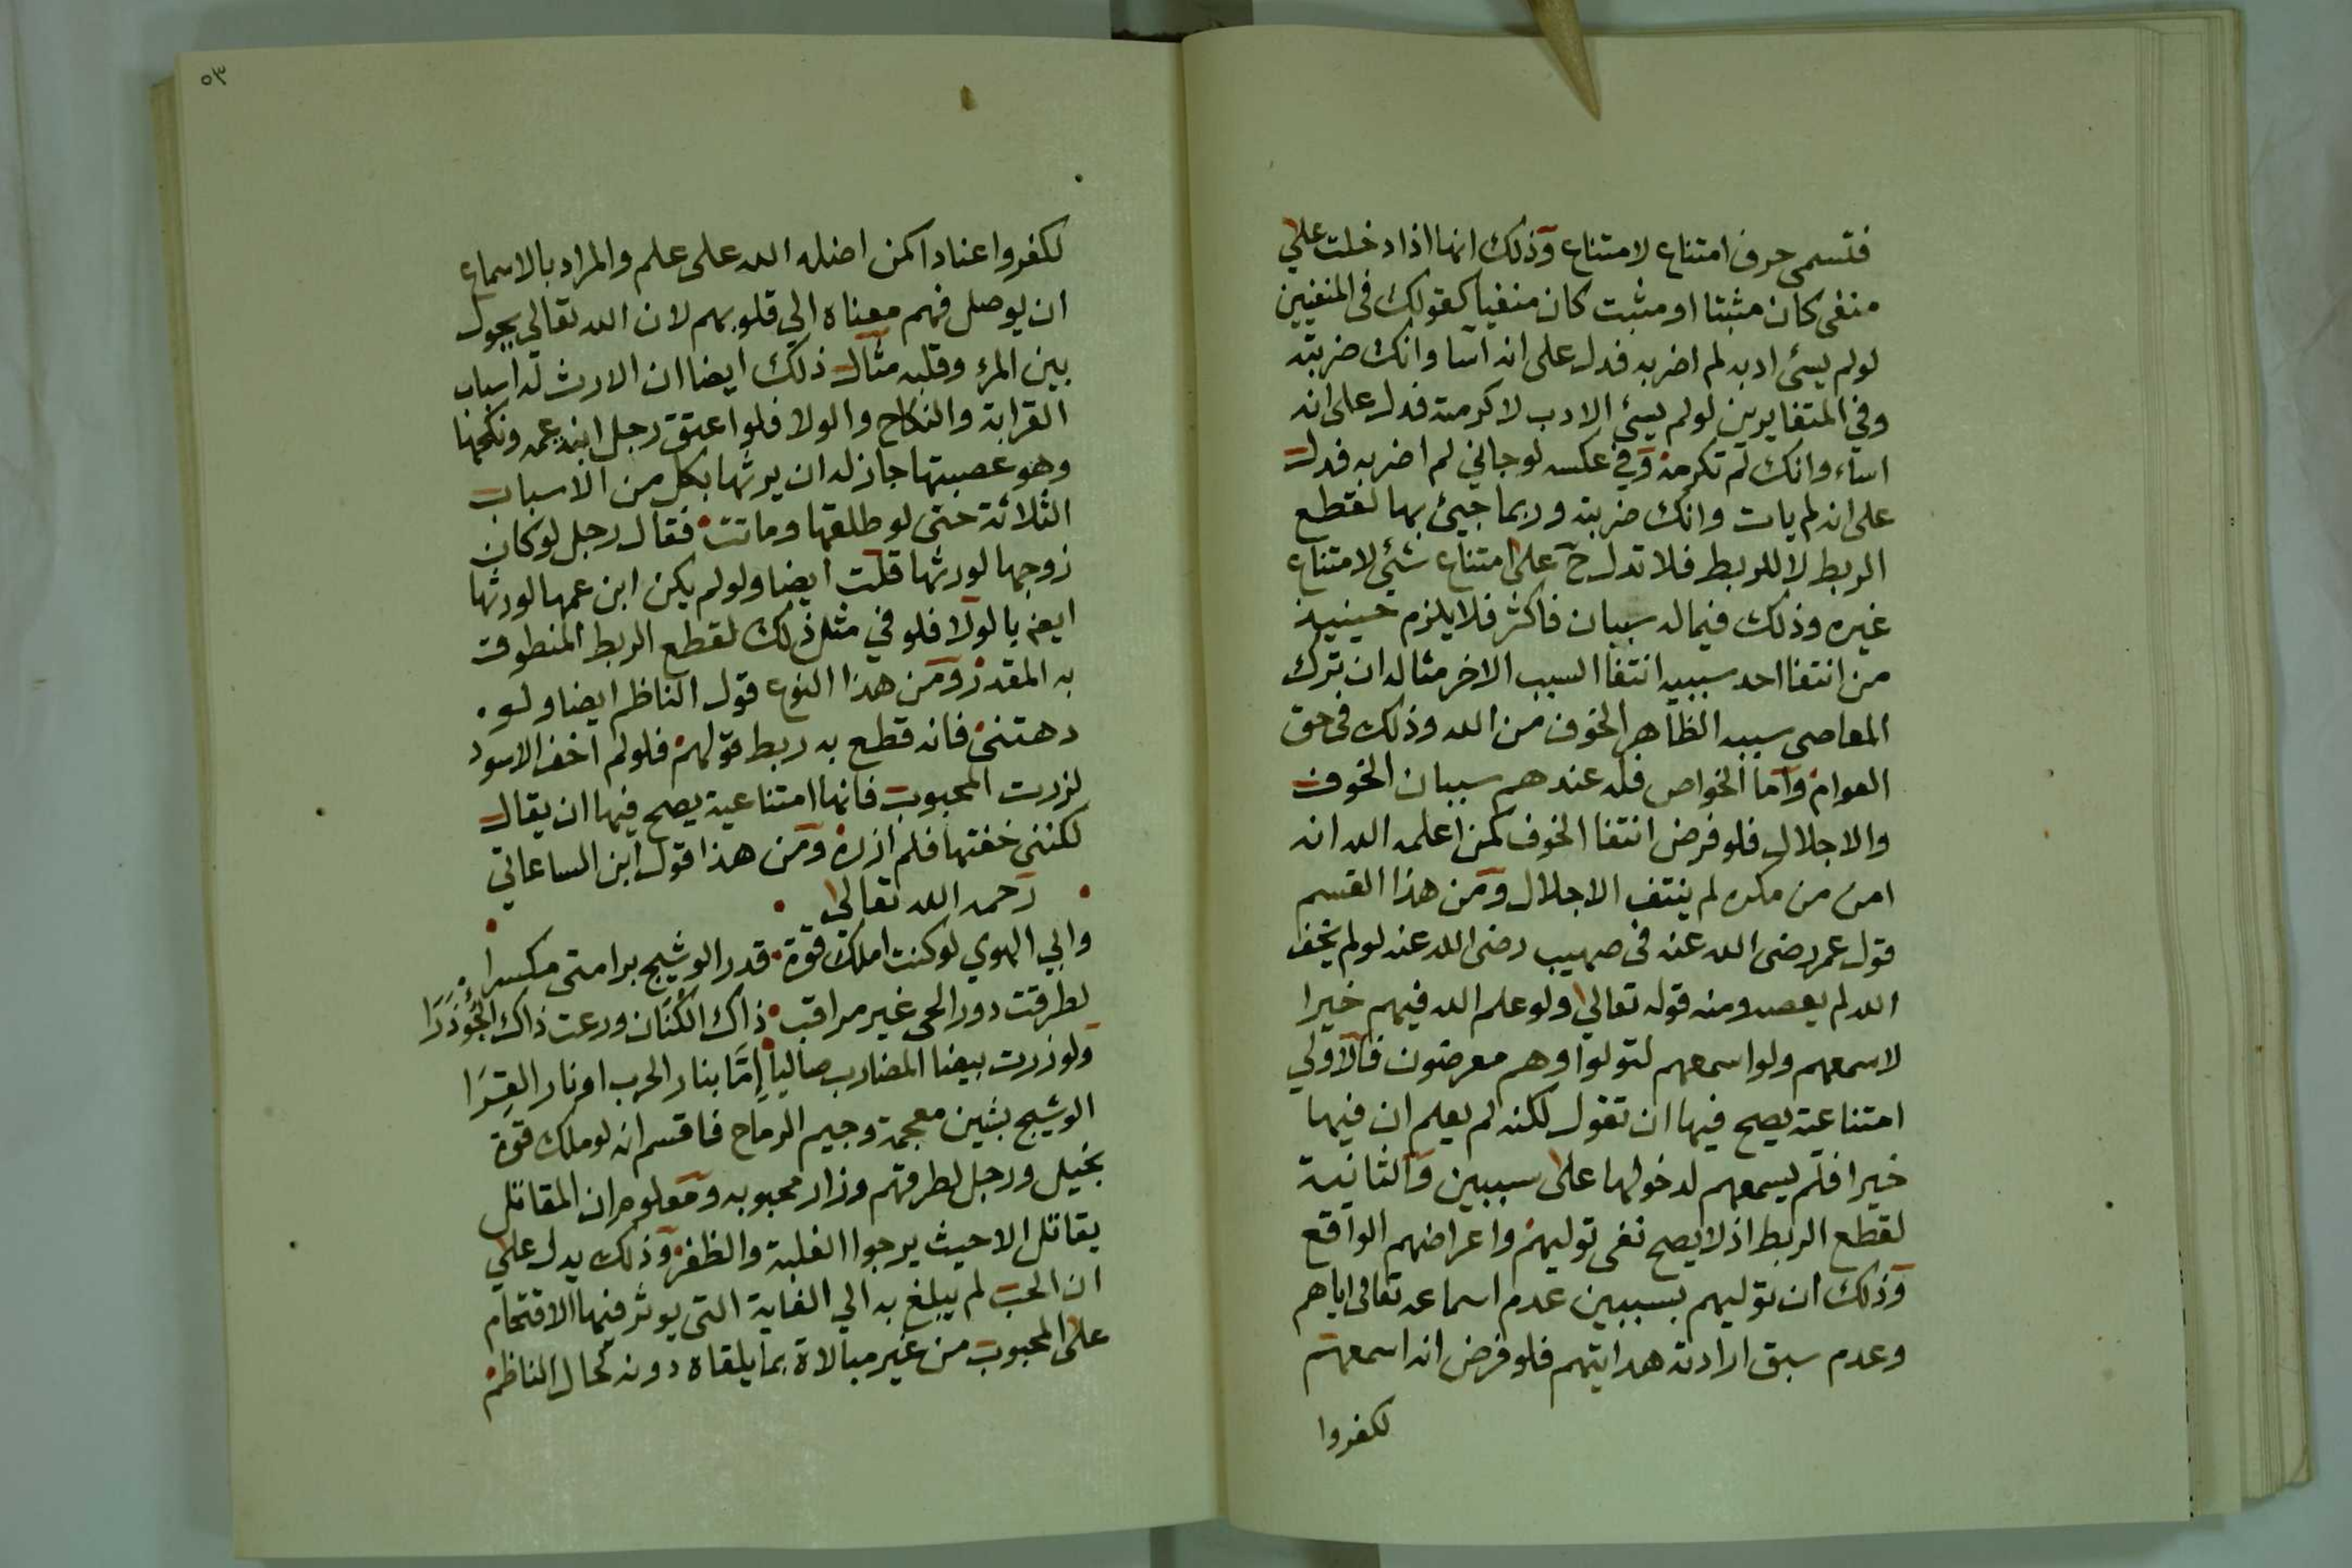 فتسمى حرف امتناع لامتناع وذلك انها اذا دخلت علي
منفى كان مثبتا او مثبت كان منفيا كقولك فى المنفيين
لو لم يسئ ادبه لم اضربه فدل على انه اسا وانك ضربته
وفي المتغايرين لو لم يسئ الادب لاكرمته فدل على انه
اساء وانك لم تكرمه وفي عكسه لو جاني لم اضربه فدل
على انه لم يات وانك ضربته وربما جيئ بها لقطع
الربط لا للربط فلا تدل ح على امتناع شئي لامتناع
غيره وذلك فيما له سببان فاكثر فلا يلزم حينيذ
من انتفا احد سببيه انتفا السبب الاخر مثاله ان ترك
المعاصى سببه الظاهر الخوف من الله وذلك فى حق
العوام واما الخواص فله عندهم سببان الخوف
والاجلال فلو فرض انتفا الخوف كمن اعلمه الله انه
امن من مكره لم ينتف الاجلال ومن هذا القسم
قول عمر رضى الله عنه فى صهيب رضى الله عنه لو لم يخف
الله لم يعصه ومنه قوله تعالي ولو علم الله فيهم خيرا
لاسمعهم ولو اسمعهم لتولوا وهم معرضون فالاولي
امتناعية يصح فيها ان تقول لكنه لم يعلم ان فيها
خيرا فلم يسمعهم لدخولها على سببين والثانية
لقطع الربط اذ لا يصح نفى توليهم واعراضهم الواقع
وذلك ان توليهم بسببين عدم اسماعه تعالى اياهم
وعدم سبق ارادته هدايتهم فلو فرض انه اسمعهم
لكفروا
٥٣
لكفروا عنادا كمن اضله الله على علم والمراد بالاسماع
ان يوصل فهم معناه الي قلوبهم لان الله تعالي يحول
بين المرء وقلبه مثال ذلك ايضا ان الارث له اسباب
القرابة والنكاح والولا فلو اعتق رجل ابنة عمه ونكحها
وهو عصبيتها جاز له ان يرثها بكل من الاسباب
الثلاثة حتى لو طلقها وماتت فقال رجل لو كان
زوجها لورثها قلت ايضا ولو لم يكن ابن عمها لورثها
ايضا بالولا فلو في مثل ذلك لقطع الربط المنطوق
به المقدر ومن هذا النوع قول الناظم ايضا ولو
دهتنى فانه قطع به ربط قولهم فلو لم اخف الاسود
لزرت المحبوب فانها امتناعية يصح فيها ان يقال
لكننى خفتها فلم ازره ومن هذا قول ابن الساعاتي
رحمه الله تعالي
وابي الهوي لو كنت املك قوة قدر الوشيج برامتى مكسرا
لطرقت دور الحى غير مراقب ذاك الكنان ورعت ذاك الجؤذرا
ولو زرت بيضا المضارب صاليا إمَّا بنار الحرب او نار القِرَا
الوشيج بشين معجمة وجيم الرماح فاقسم انه لو ملك قوة
بخيل ورجل لطرقهم وزار محبوبه ومعلوم ان المقاتل
يقاتل الا حيث يرجوا الغلبة والظفر وذلك يدل علي
ان الحب لم يبلغ به الي الغاية التى يوثر فيها الاقتحام
على المحبوب من غير مبالاة بما يلقاه دونه كحال الناظم